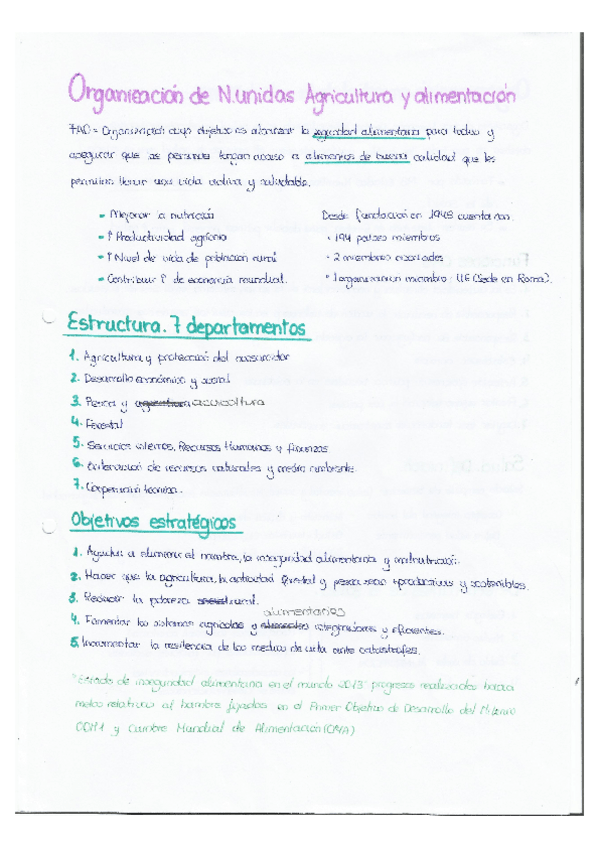 Organización de N.unidas Agricultura y alimentación
FAO = Organización cuyo objetivo es alcanzar la seguridad alimentaria para todos y
asegurar que las personas tengan acceso a alimentos de buena calidad que les
permitan llevar una vida activa y saludable.
- Mejorar la nutrición
- ↑ Productividad agrícola
- ↑ Nivel de vida de población rural
- Contribuir ↑ de economía mundial.
Desde fundación en 1945 cuenta con:
· 194 países miembros
· 2 miembros asociados
· 1 organización miembro: UE (Sede en Roma).
Estructura. 7 departamentos
1. Agricultura y protección del consumidor
2. Desarrollo económico y social
3. Pesca y acuicultura
4. Forestal
5. Servicios internos, Recursos Humanos y finanzas
6. Ordenación de recursos naturales y medio ambiente.
7. Cooperación técnica.
Objetivos estratégicos
1. Ayudar a eliminar el hambre, la inseguridad alimentaria y malnutrición.
2. Hacer que la agricultura, la actividad forestal y pesca sean +productivas y sostenibles.
3. Reducir la pobreza rural.
4. Fomentar los sistemas agrícolas y alimentarios integradores y eficientes.
5. Incrementar la resiliencia de los medios de vida ante catástrofes.
"Estado de inseguridad alimentaria en el mundo 2013: progresos realizados hacia
metas relativas al hambre fijadas en el Primer Objetivo de Desarrollo del Milenio
ODM1 y Cumbre Mundial de Alimentación (CMA)